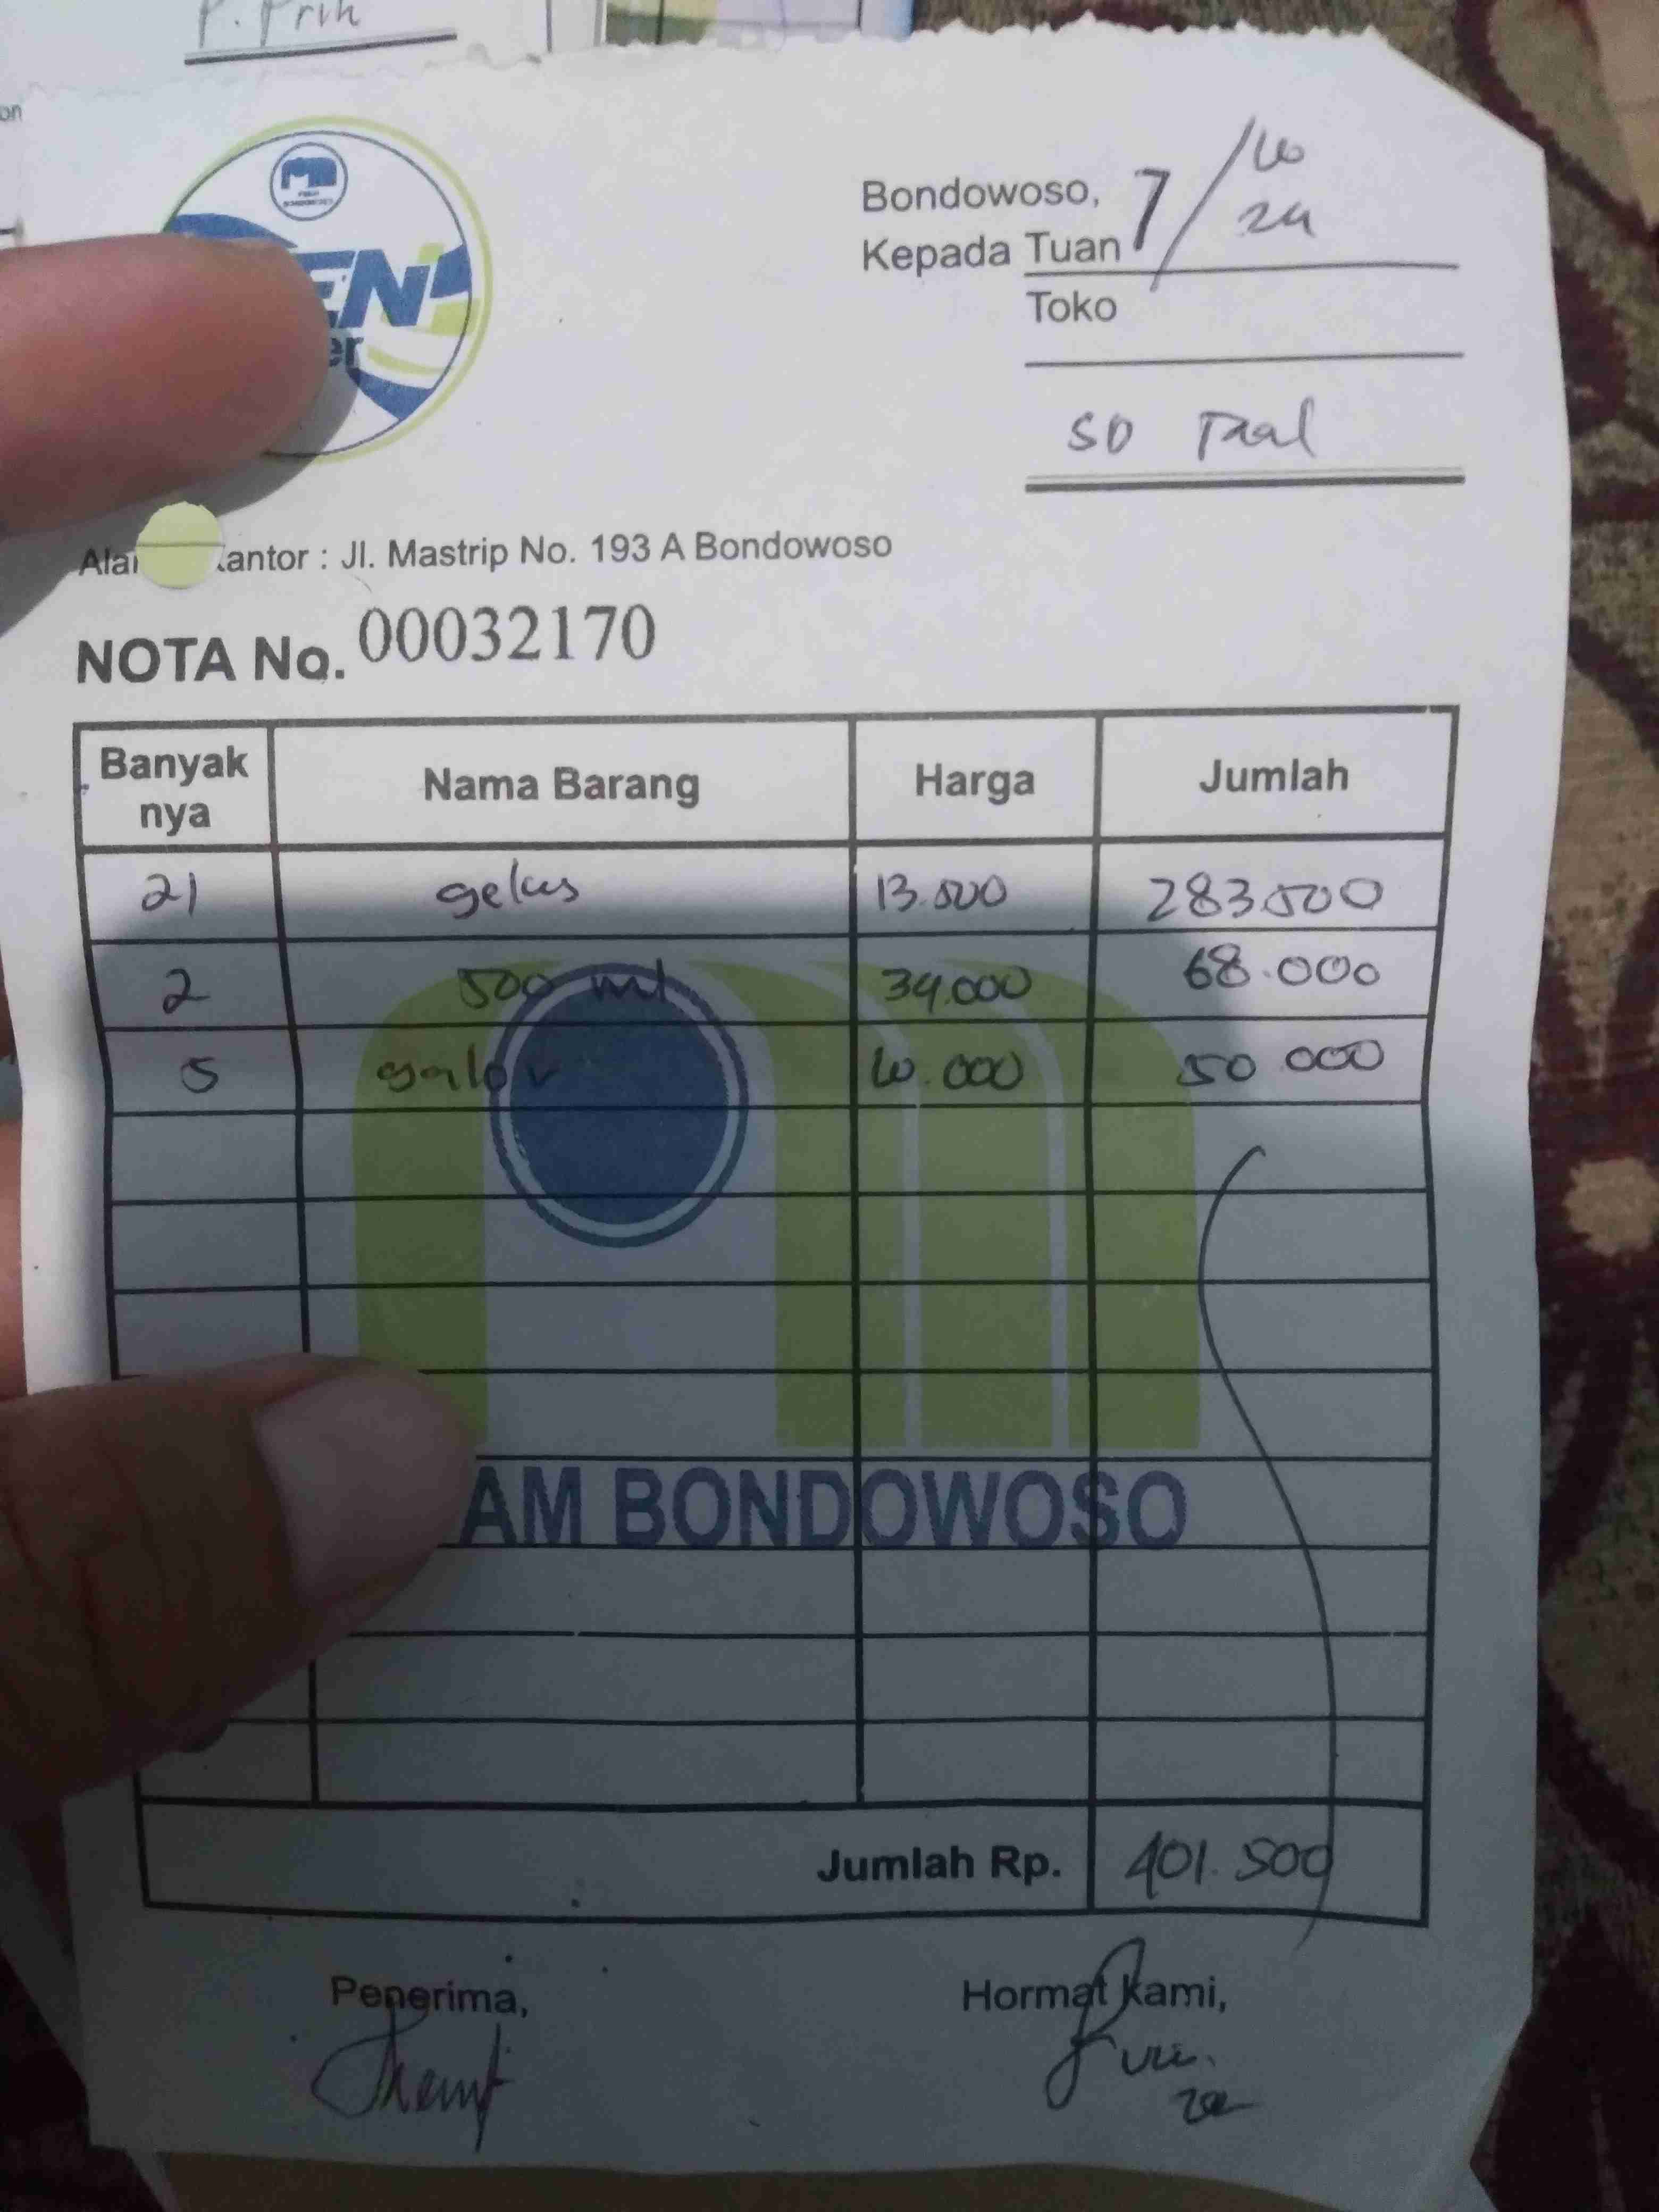 P. Prih
on
EN
er
Bondowoso, 7/10 24
Kepada Tuan
Toko
SD Taal
Ala antor : Jl. Mastrip No. 193 A Bondowoso
NOTA No. 00032170
Banyak nya Nama Barang Harga Jumlah
21 gelas 13.500 283.500
2 500 ml 34.000 68.000
5 galon 10.000 50.000
AM BONDOWOSO
Jumlah Rp. 401.500
Penerima, Hormat Kami,